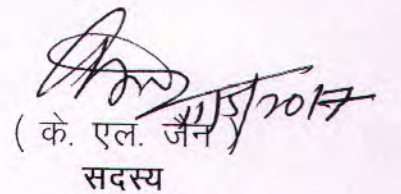 11/5/2017
( के. एल. जैन )
सदस्य